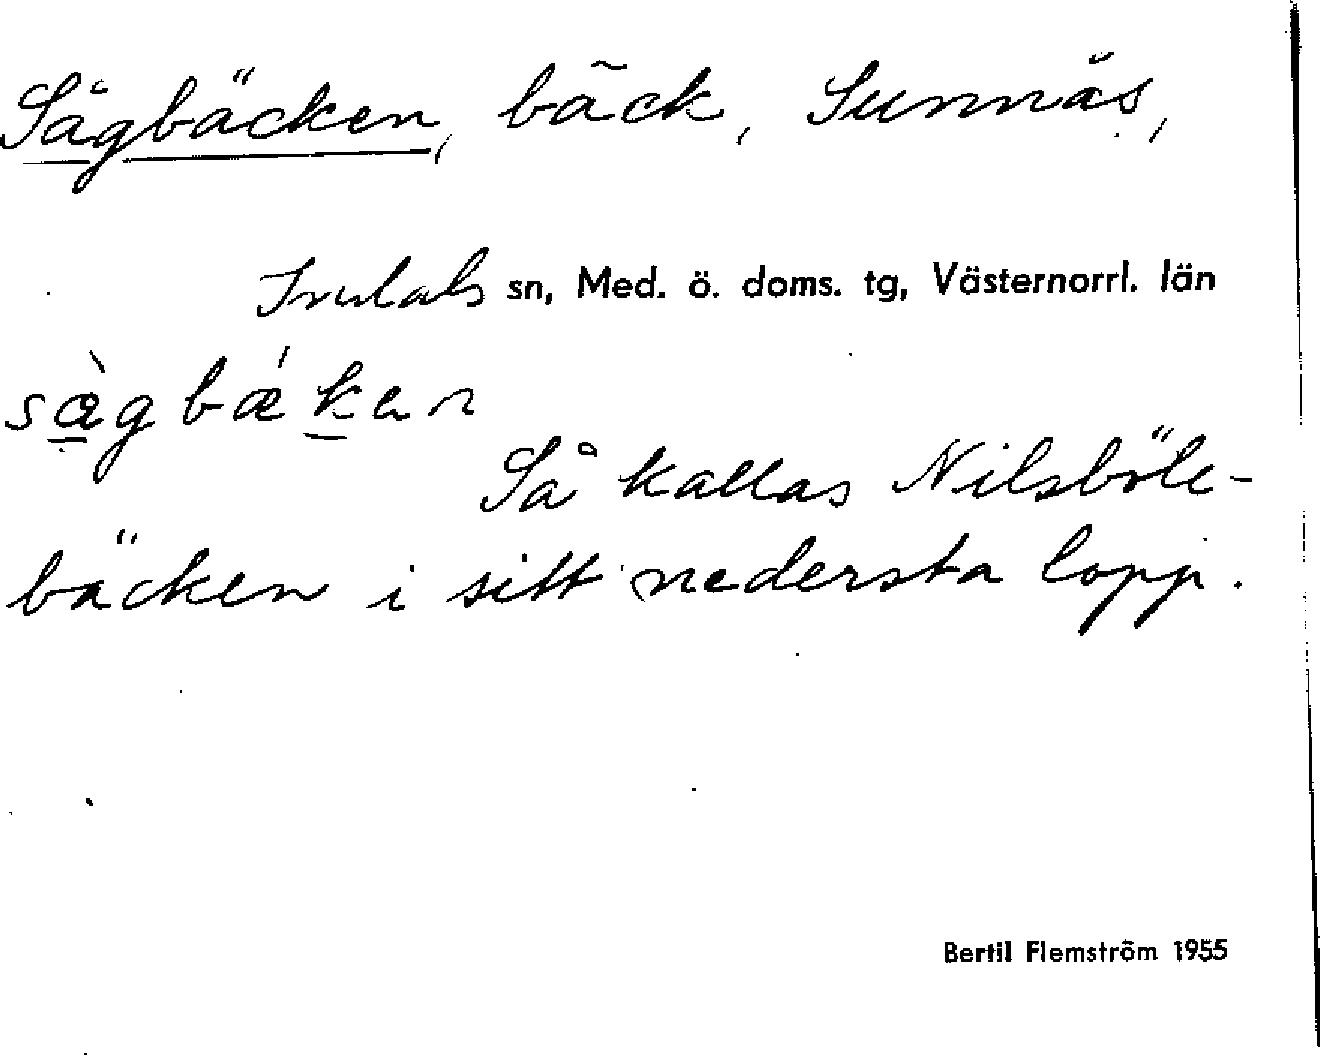 Sågbäcken, bäck, Sunnäs,
Indals sn, Med. ö. doms. tg, Västernorrl. län
sàgbǽkan
Så kallas Nilsböle-
bäcken i sitt nedersta lopp.
Bertil Flemström 1955